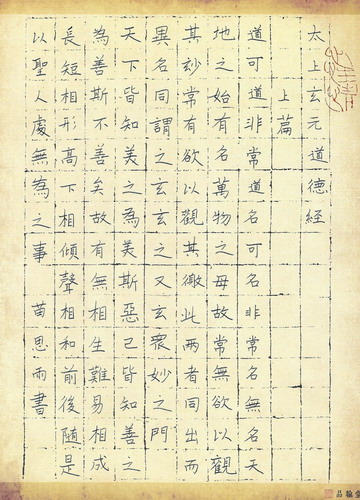 太上玄元道德經
上篇
道可道非常道名可名非常名無名天
地之始有名萬物之母故常無欲以觀
其玅常有欲以觀其徼此兩者同出而
異名同謂之玄玄之又玄衆妙之門
天下皆知美之為美斯惡已皆知善之
為善斯不善矣故有無相生難易相成
長短相形高下相傾聲相和前後隨是
以聖人處無為之事 苗思雨書